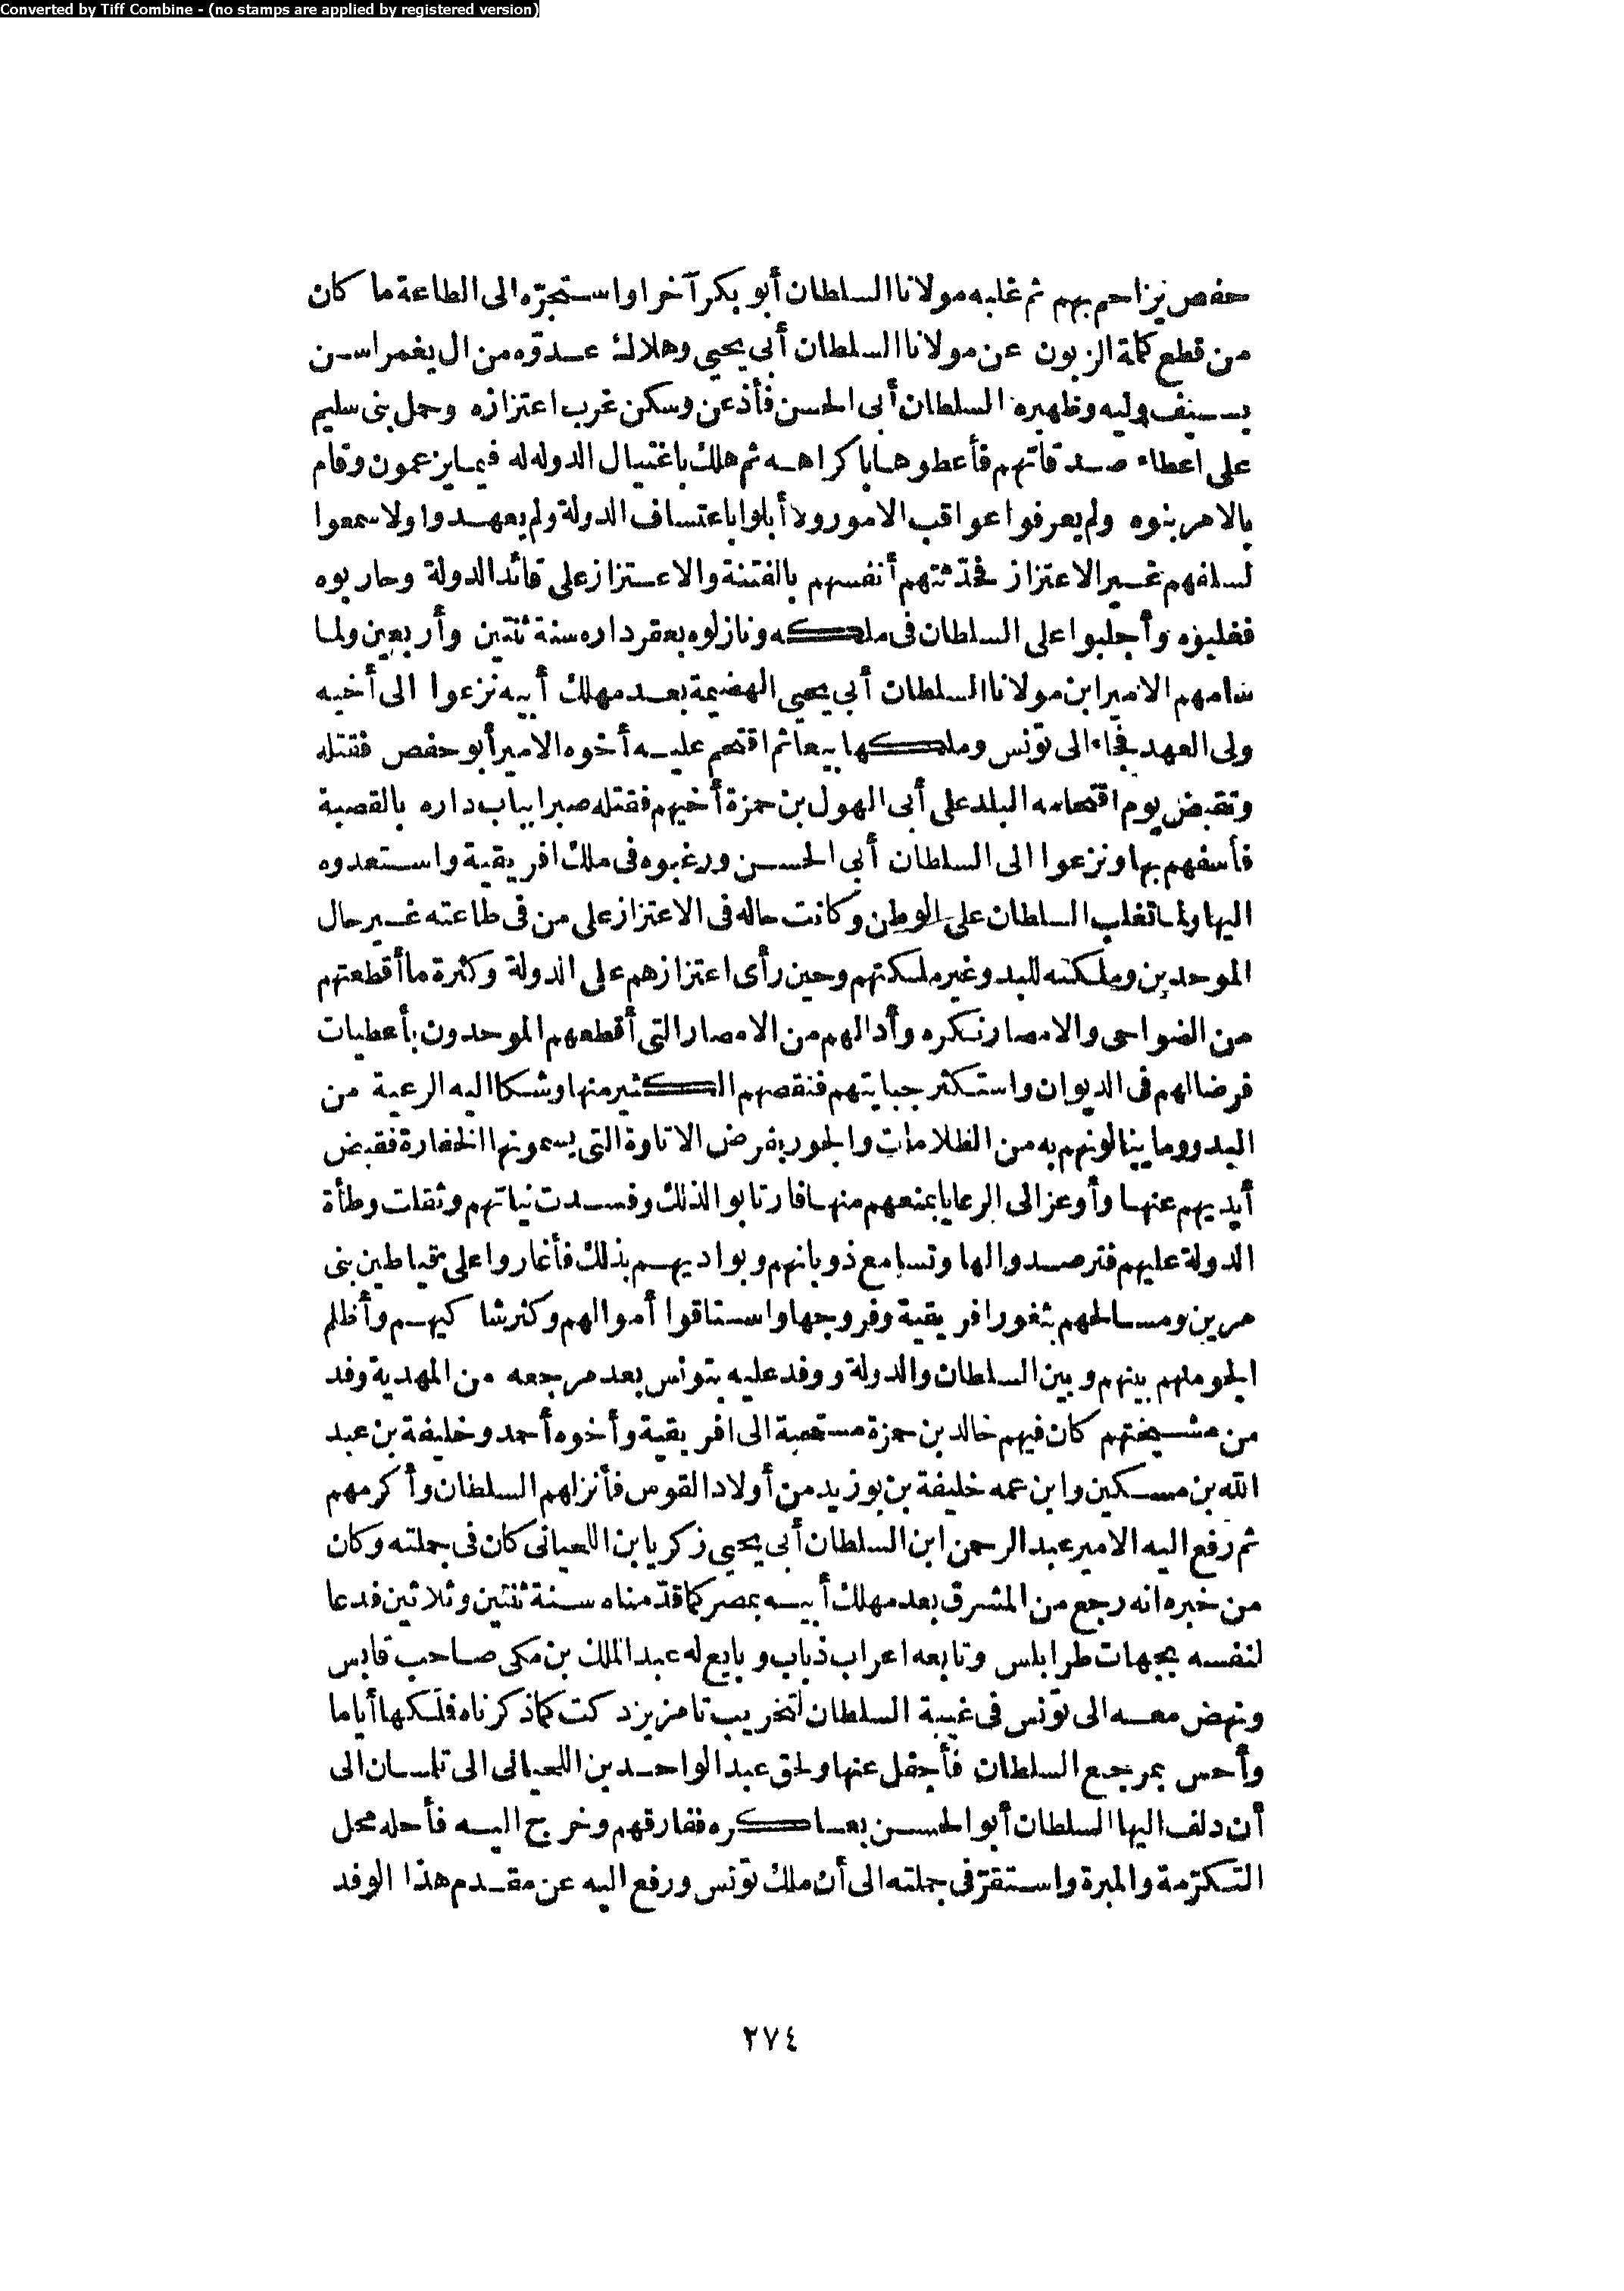 Converted by Tiff Combine - (no stamps are applied by registered version)
حفص يزاحم بهم ثم غلبه مولانا السلطان أبو بكر آخرا واستجرّه الى الطاعة ما كان
من قطع كلمة الزبون عن مولانا السلطان أبي يحيى وهلاك عدوّه من ال يغمراسن
بسيف وليه وظهيره السلطان أبى الحسن فأذعن وسكن غرب اعتزازه وحمل بنى سليم
على اعطاء صدقاتهم فأعطوها باكراهه ثم هلك باغتيال الدوله له فيما يزعمون وقام
بالامر بنوه ولم يعرفوا عواقب الامور ولا أبلوا باعتساف الدولة ولم يعهدوا ولا سمعوا
لسلفهم غير الاعتزاز فحدّثتهم أنفسهم بالفتنة والاعتزاز على قائد الدولة وحاربوه
فغلبوه وأجلبوا على السلطان فى ملكه ونازلوه بعقر داره سنة ثنتين وأربعين ولما
سامهم الامير ابن مولانا السلطان أبي يحيى الهضيمة بعد مهلك أبيه نزعوا الى أخيه
ولى العهد فجاء الى تونس وملكها سبعا ثم اقتحم عليه أخوه الامير أبو حفص فقتله
وتقبض يوم اقتحامه البلد على أبى الهول بن حمزة أخيهم فقتله صبرا بباب داره بالقصبة
فأسفهم بها ونزعوا الى السلطان أبي الحسن ورغبوه فى ملك افريقية واستعدوه
اليها ولما تغلب السلطان على الوطن وكانت حاله فى الاعتزاز على من فى طاعته غير حال
الموحدين وملكته للبدو غير ملكتهم وحين رأى اعتزازهم على الدولة وكثرة ما أقطعتهم
من الضواحى والامصار نكره وأدالهم من الامصار التى أقطعهم الموحدون بأعطيات
فرضا لهم فى الديوان واستكثر جبايتهم فنقصهم الكثير منها وشكا اليه الرعية من
البدو وما ينالونهم به من الظلامات والجور بفرض الاتاوة التى يسمونها الخفارة فقبض
أيديهم عنها وأوعز الى الرعايا بمنعهم منها فارتابوا لذلك وفسدت نياتهم وثقلت وطأة
الدولة عليهم فترصدوا لها وتسامع ذوبانهم وبواديهم بذلك فأغاروا على قياطين بنى
مرين ومسالحهم بثغور افريقية وفروجها واستاقوا أموالهم وكثر شاكيهم وأظلم
الجو ما بينهم وبين السلطان والدولة ووفد عليه بتونس بعد مرجعه من المهدية وفد
من مشيختهم كان فيهم خالد بن حمزة مستحثه الى افريقية وأخوه أحمد وخليفة بن عبد
الله بن مسكين وابن عمه خليفة بن بوزيد من أولاد القوس فأنزلهم السلطان وأكرمهم
ثم رفع اليه الامير عبد الرحمن ابن السلطان أبى يحيى زكريا بن اللحيانى كان فى جملته وكان
من خبره انه رجع من المشرق بعد مهلك أبيه بمصر كما قدّمناه سنة ثنتين وثلاثين فدعا
لنفسه بجهات طرابلس وتابعه اعراب ذباب وبايع له عبد الملك بن مكى صاحب قابس
ونهض معه الى تونس فى غيبة السلطان لتخريب تامزيزدكت كما ذكرناه فملكها أياما
وأحس بمرجع السلطان فأجفل عنها ولحق عبد الواحد بن اللحيانى الى تلمسان الى
أن دلف اليها السلطان أبو الحسن بعساكره ففارقهم وخرج اليه فأحله محل
التكرّمة والمبرة واستقرّ فى جملته الى أن ملك تونس ورفع اليه عن مقدم هذا الوفد
٢٧٤